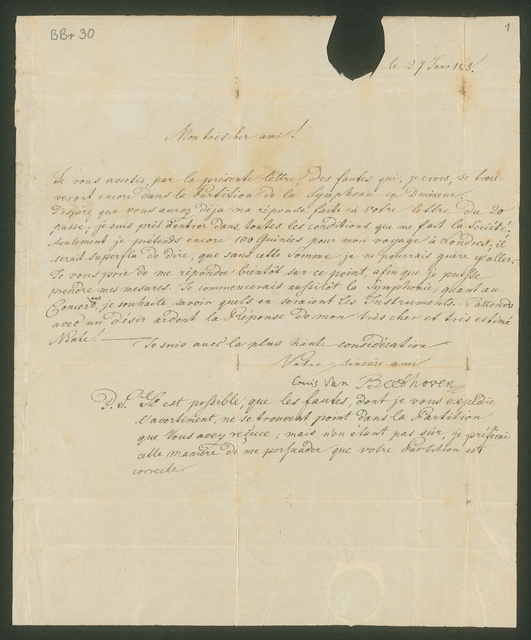 BBr 30
1
le 27 Janv 1825.
Mon très cher ami!
Je vous avertis, par la présente lettre, des fautes qui, je crois, se trou
veront encore dans la Partition de la Symphonie en D mineur.
J'espère que vous aurez déja ma réponse faite à votre lettre du 20
passé; je suis prêt d'entrer dans toutes les conditions que me fait la Societé;
seulement je prétends encore 100 Guinées pour mon voyage à Londres; il
serait superflu de dire, que sans cette Somme je ne pourrais guère y aller.
Je vous prie de me répondre bientôt sur ce point, afin que je puisse
prendre mes mesures. Je commencerais aussitôt la Symphonie, quant au
Concert, je souhaite savoir quels en seraient les Instruments. J'attends
avec un désir ardent la Réponse de mon très cher et très estimé
Neate!
Je suis avec la plus haute considération
Votre sincère ami
Louis van Beethoven
P.S. Il est possible, que les fautes, dont je vous expédie
l'avertiment, ne se trouvent point dans la Partition
que Vous avez reçue; mais n'en étant pas sûr, je préférai
cette manière de me persuader que votre Partition est
correcte.